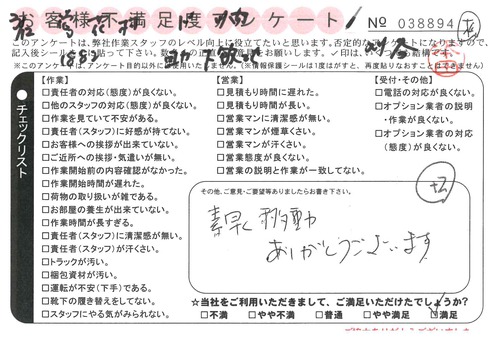 お客様不満足度アンケート
№ 038894
このアンケートは、弊社作業スタッフのレベル向上に役立てたいと思います。否定的なアンケートになりますので、
記入後シールを上に貼って下さい。
※このアンケートは、アンケート目的以外に使用いたしません。(※情報保護シールは1度はがすと、再度貼りなおすことはできません)
チェックリスト
【作業】
□責任者の対応(態度)が良くない。
□他のスタッフの対応(態度)が良くない。
□作業を見ていて不安がある。
□責任者(スタッフ)に好感が持てない。
□お客様への挨拶が出来ていない。
□ご近所への挨拶・気遣いが無い。
□作業開始前の内容確認がなかった。
□作業開始時間が遅れた。
□荷物の取り扱いが雑である。
□お部屋の養生が出来ていない。
□作業時間が長すぎる。
□責任者(スタッフ)に清潔感が無い。
□責任者(スタッフ)が汗くさい。
□トラックが汚い。
□梱包資材が汚い。
□運転が不安(下手)である。
□靴下の履き替えをしてない。
□スタッフにやる気がみられない。
【営業】
□見積もり時間に遅れた。
□見積もり時間が長い。
□営業マンに清潔感が無い。
□営業マンが煙草くさい。
□営業マンが汗くさい。
□営業態度が良くない。
□営業の説明と作業が一致してない。
【受付・その他】
□電話の対応が良くない。
□オプション業者の説明
・作業が良くない。
□オプション業者の対応
(態度)が良くない。
その他、ご意見・ご要望等ありましたらお書き下さい。
素早く移動
ありがとうございます
☆当社をご利用いただきまして、ご満足いただけたでしょうか?
□不満 □やや不満 □普通 □やや満足 □満足